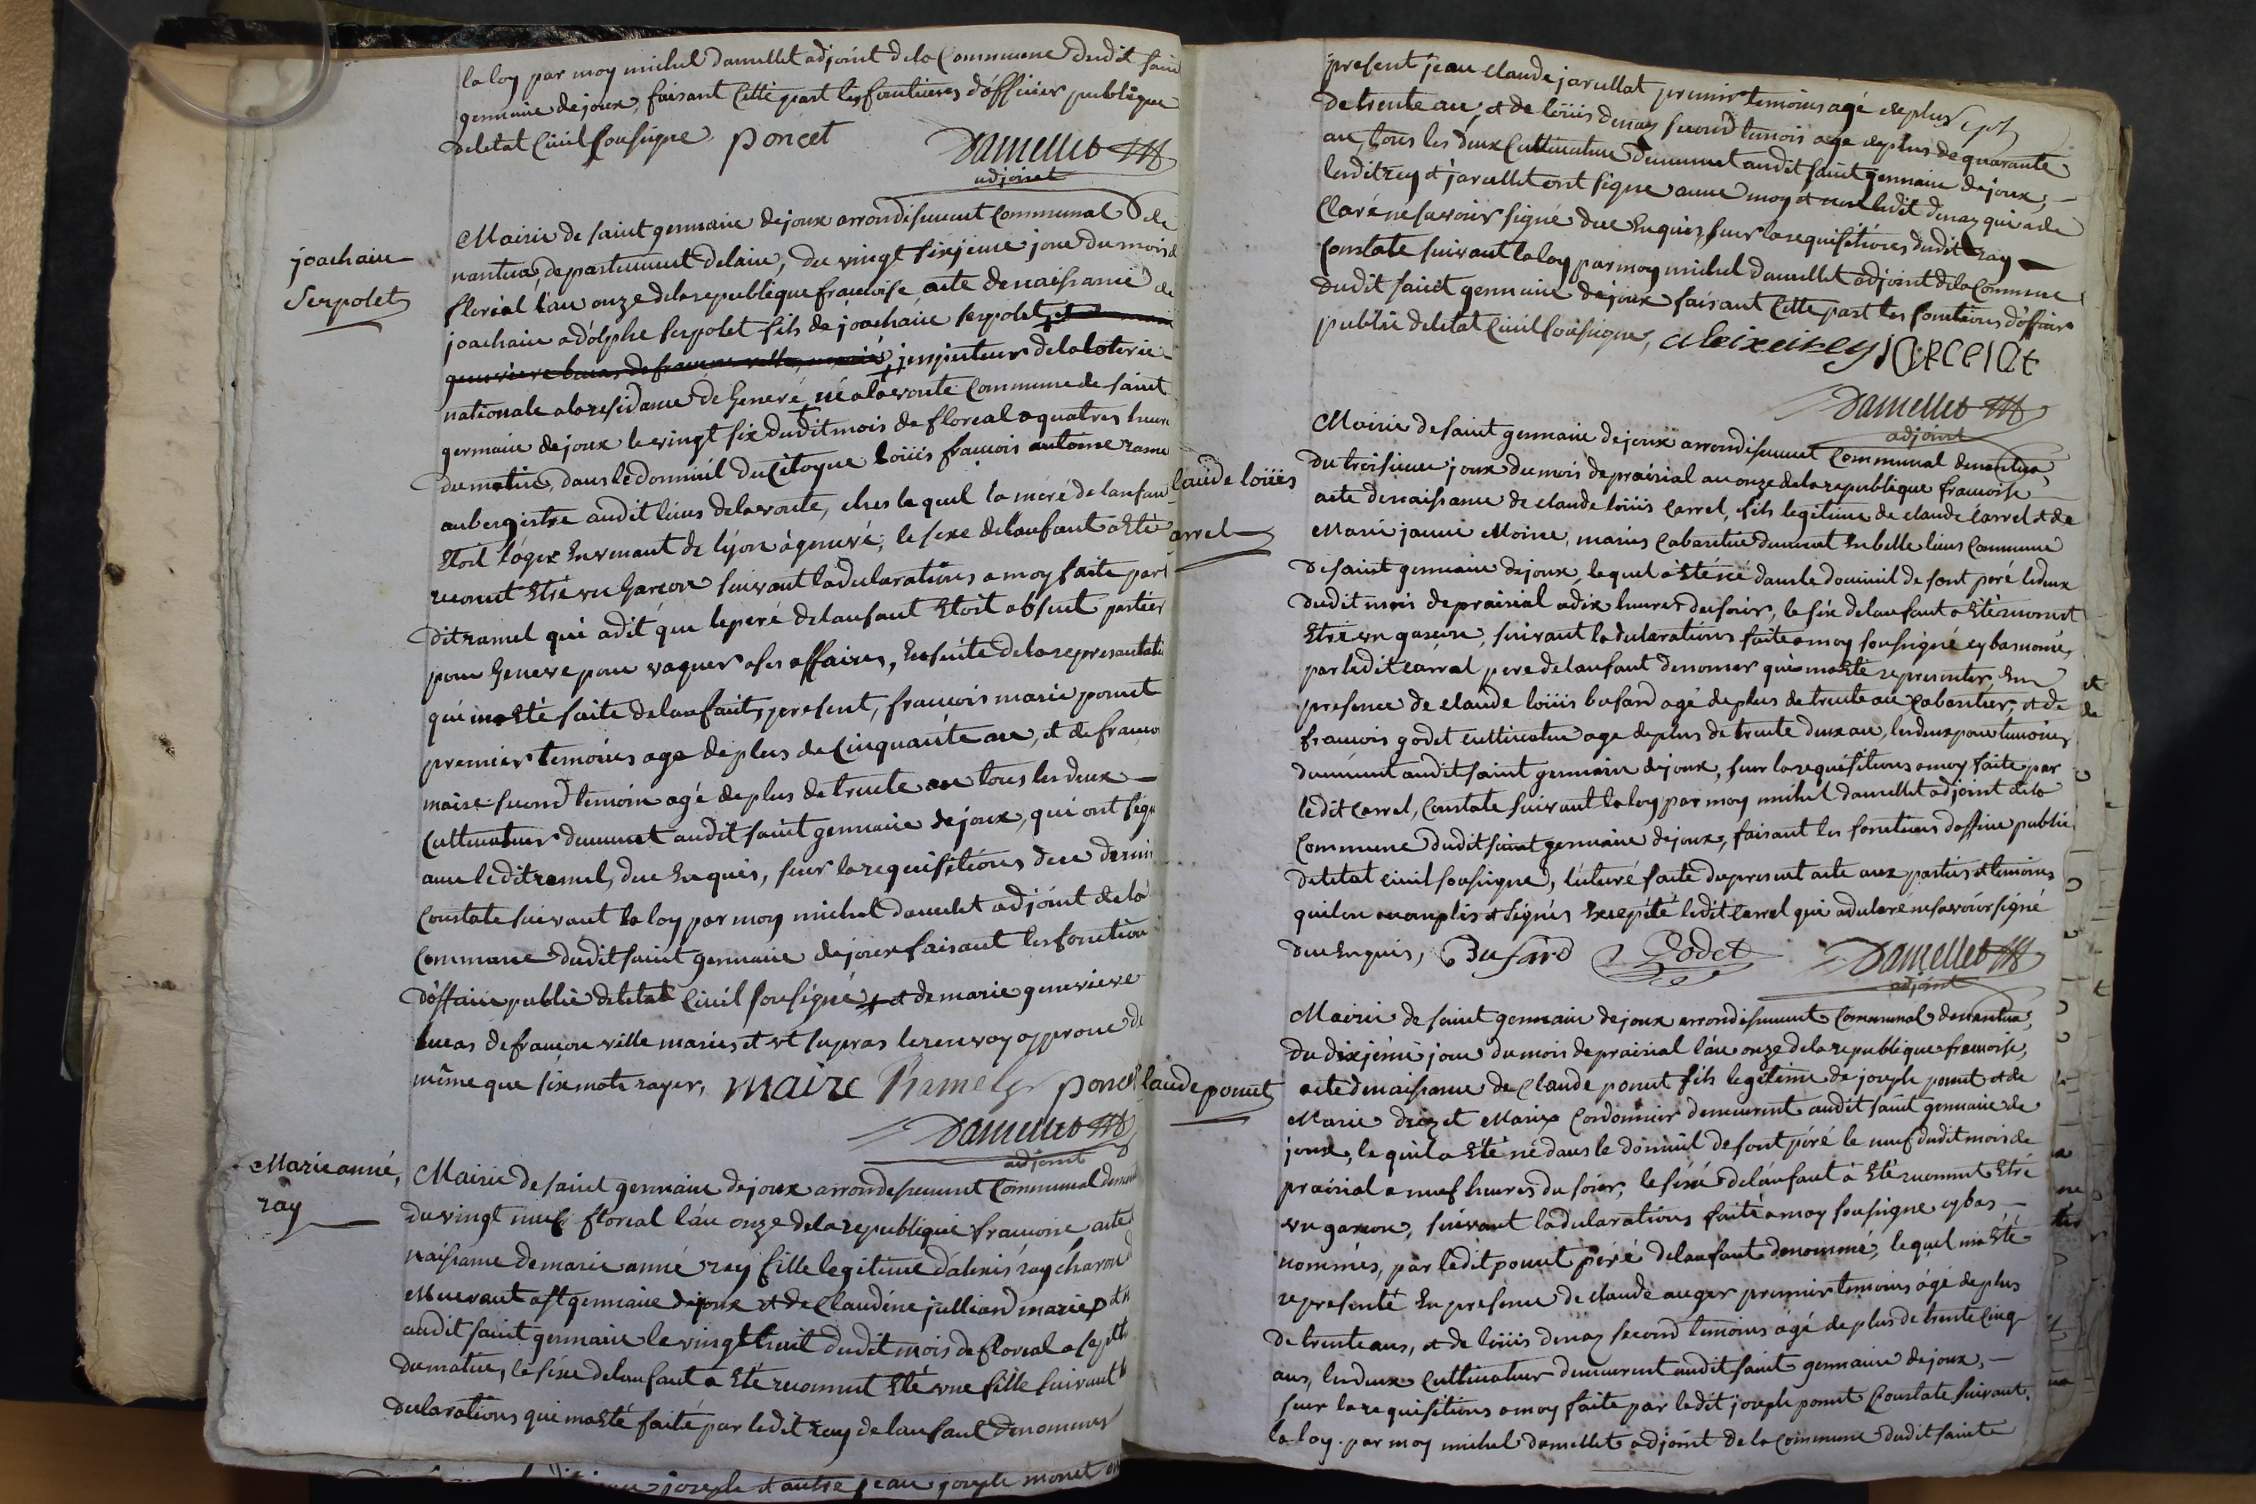 la loy par moy michel Damellet adjoint dela Commune dudit saint
germaint dejoux, faisant Cette part les fontiones d'officier publique
deletat Civil sousigné, poncet Damellet
adjoint
joachain
Serpolet
Mairie de saint germaint dejoux arrondisement Communal de
nantua, departement delain, du vingt sixjeme jour du mois de
floréal l'an onze dela republique francoise acte denaissance de
joachain adolphe serpolet fils de joachain serpolet
jnspecteur dela loterie
nationale ala residance de Genevé, né a la voute Commune de saint
germain dejoux le vingt six dudit mois de floreal a quatres heure
du matin, dans le domicil du Citoyen loüis francois antoine ramel
aubergistre audit lieus delavoute, ches le quel la meré delanfant
Etoit loger En venant de lÿon àgenevé; le sexe delanfant a Eté
reconut Etre un Garcon suivant la declarations a moy faite par
dit ramel qui a dit que le peré delanfant Etoit absent partier
pour Geneve pour vaquer a ses affaires, En suite dela representation
qui ma Eté faite delanfant, present, francois marie poncet
premier temoins age deplus de Cinquante ans, et de francois
maire second temoin agé deplus de trente ans tous les deux
Cultivateur demeurant audit saint germain dejoux, qui ont signé
avec ledit ramel, due Enquis, sur la requisitions de ce dernier
Constaté suivant la loy par moy michel damellet adjoint dela
Commune dudit saint germain dejoux faisant les fonctions
d'officier public deletat Civil sousigné + et de marie genevieve
lucas defrancon ville maries et vt supras le renvoy approuvé de
même que six mots rayer, maire Ramel poncet
Damellet
adjoint
Marie anné,
ray
Mairie de saint germain dejoux arrondisement Communal denantua
du vingt neuf floreal l'an onze dela republique francoise acte de
naissance demarie anné ray fille legitime d'alexis ray charon
audit saint germain le vingt huit dudit mois de floreal a sept
du matin, le sexe delanfant a Eté reconnut Eté une fille suivant la
declarations qui ma Eté faite par ledit ray delanfant denommer
joseph et autre jean joseph monet
present jean claude jarcellat premier temoins agé deplus
de trente an, et de loüis denaz second temoin age deplus de quarante
an, tous les deux Cultivateur demeurant audit saint germain dejoux,
lesdit ray et jarcellet ont signé avec moy et non ledit denaz qui a de
Claré ne savoir signé due Enquis, sur la requisitions dudit ray
Constaté suivant la loy par moy michel damellet adjoint dela Commune
dudit saint germain dejoux faisant Cette part les fonctions d'officier
public deletat Civil sousigné, alexi rey
Damellet
adjoint
laude loüis
arrel
Mairie de saint germain dejoux arrondisement Communal denantua,
du troisieme joux du mois de prairial an onze dela republique francoise
acte denaissance de claude loüis Carrel, fils legitime de claude Carrel et de
Marie janne Moine, maries Cabaretier demeurant En belle lieus Commune
de saint germain dejoux, lequel a Eté né dans le domicil de sont peré le deux
dudit mois de prairial a dix heures du soir, le sexe delanfant a Eté reconnut
Etre un garcon, suivant la declarations faite a moy sousigné cy bas nomé,
par ledit carrel pere delanfant denomer qui ma Eté representer En
presence de claude loüis bufard agé deplus de trente an Cabaretier, et de
francois godet cultivateur age deplus de trente deux an, les deux pour temoins
demeurant audit saint germain dejoux, sur la requisitions a moy faite par
ledit Carrel, Constaté suivant la loy par moy michel damellet adjoint dela
Commune dudit saint germain dejoux, faisant les fonctions d'officier public
deletat civil sousigné, lecturé faite du present acte aux parties et temoins
quil on remplis et signés Excepté ledit Carrel qui a declaré ne savoir signé
due Enquis, Bufard Godet Damellet
adjoint
laude poncet
Mairie de saint germain dejoux arrondisement Communal denantua,
du dixjéme jour du mois de prairial l'an onze dela republique francoise,
acte denaissance de Claude poncet fils legitime de joseph poncet et de
Marie Maries Cordonnier demeurent audit saint germain de
joux, le quil a Eté né dans le domicil de sont péré le neuf dudit mois de
prairial a neuf heures du soir, le séxé delánfant à Eté reconnut Etré
un garcon, suivant la declarations faité a moy sousigne cy bas
nommés, par ledit poncet péré delanfant denommé, lequel ma Eté
representé En presence de claude auger premier temoins ágé deplus
de trente ans, et de loüis denaz second temoins ágé deplus de trente Cinq
ans, les deux Cultivateur demeurent audit saint germain dejoux,
sur la requisitions a moy faite par ledit joseph poncet Constaté suivant
la loy par moy michel damellet adjoint dela Commune dudit sainte